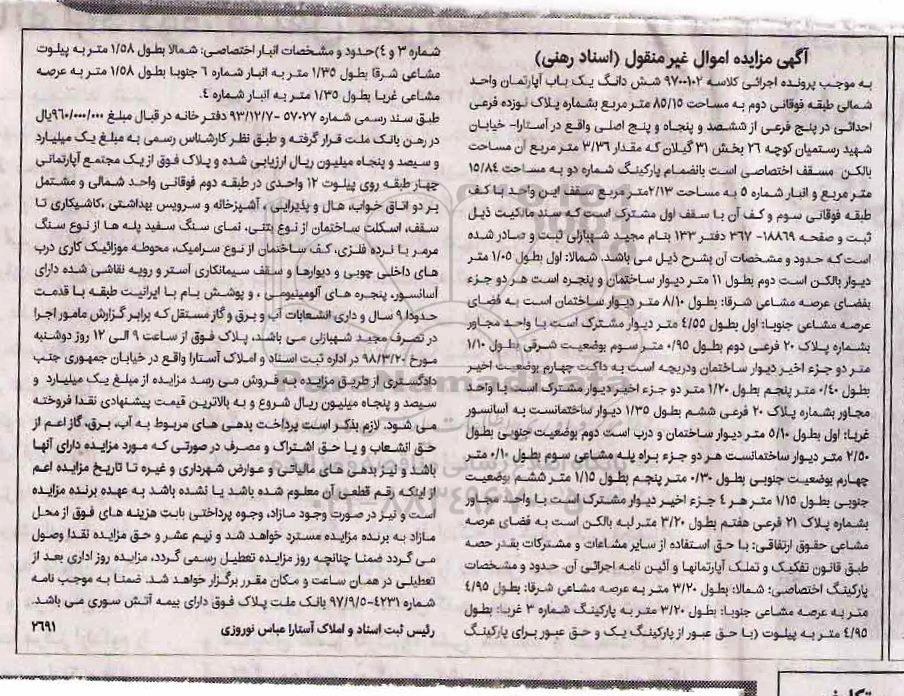 آگهی مزایده اموال غیر منقول (اسناد رهنی)
به موجب پرونده اجرائی کلاسه ۹۷۰۰۱۰۲ شش دانگ یک باب آپارتمان واحد
شمالی طبقه فوقانی دوم به مساحت ۸۵/۱۵ متر مربع بشماره پلاک نوزده فرعی
احداثی در پنج فرعی از ششصد و پنجاه و پنج اصلی واقع در آستارا- خیابان
شهید رستمیان کوچه ۲۶ بخش ۳۱ گیلان که مقدار ۳/۳۶ متر مربع آن مساحت
بالکن مسقف اختصاصی است بانضمام پارکینگ شماره دو به مساحت ۱۵/۸۴
متر مربع و انبار شماره ۵ به مساحت ۲/۱۳متر مربع سقف این واحد با کف
طبقه فوقانی سوم و کف آن با سقف اول مشترک است که سند مالکیت ذیل
ثبت و صفحه ۱۸۸۶۹- ۳۶۷ دفتر ۱۳۳ بنام مجید شهبازلی ثبت و صادر شده
است که حدود و مشخصات آن بشرح ذیل می باشد. شمالا: اول بطول ۱/۰۵ متر
دیوار بالکن است دوم بطول ۱۱ متر دیوار ساختمان و پنجره است هر دو جزء
بفضای عرصه مشاعی شرقا: بطول ۸/۱۰ متر دیوار ساختمان است به فضای
عرصه مشاعی جنوبا: اول بطول ۴/۵۵ متر دیوار مشترک است با واحد مجاور
بشماره پلاک ۲۰ فرعی دوم بطول ۰/۹۵ متر سوم بوضعیت شرقی بطول ۱/۱۰
متر دو جزء اخیر دیوار ساختمان ودریچه است به داکت چهارم بوضعیت اخیر
بطول ۰/۴۰ متر پنجم بطول ۱/۲۰ متر دو جزء اخیر دیوار مشترک است با واحد
مجاور بشماره پلاک ۲۰ فرعی ششم بطول ۱/۳۵ دیوار ساختمانست به آسانسور
غربا: اول بطول ۵/۱۰ متر دیوار ساختمان و درب است دوم بوضعیت جنوبی بطول
۲/۵۰ متر دیوار ساختمانست هر دو جزء براه پله مشاعی سوم بطول ۰/۱۰ متر
چهارم بوضعیت جنوبی بطول ۰/۳۰ متر پنجم بطول ۱/۱۵ متر ششم بوضعیت
جنوبی بطول ۱/۱۵ متر هر ٤ جزء اخیر دیوار مشترک است با واحد مجاور
بشماره پلاک ۲۱ فرعی هفتم بطول ۳/۲۰ متر لبه بالکن است به فضای عرصه
مشاعی حقوق ارتفاقی: با حق استفاده از سایر مشاعات و مشترکات بقدر حصه
طبق قانون تفکیک و تملک آپارتمانها و آئین نامه اجرائی آن. حدود و مشخصات
پارکینگ اختصاصی: شمالا: بطول ۳/۲۰ متر به عرصه مشاعی شرقا: بطول ۴/۹۵
متر به عرصه مشاعی جنوبا: بطول ۳/۲۰ متر به پارکینگ شماره ۳ غربا: بطول
۴/۹۵ متر به پیلوت (با حق عبور از پارکینگ یک و حق عبور برای پارکینگ
شماره ۳ و ٤)حدود و مشخصات انبار اختصاصی: شمالا بطول ۱/۵۸ متر به پیلوت
مشاعی شرقا بطول ۱/۳۵ متر به انبار شماره ٦ جنوبا بطول ۱/۵۸ متر به عرصه
مشاعی غربا بطول ۱/۳۵ متر به انبار شماره ٤.
طبق سند رسمی شماره ۵۷۰۲۷ -۹۳/۱۲/۷ دفتر خانه در قبال مبلغ ۹۶۰/۰۰۰/۰۰۰ریال
در رهن بانک ملت قرار گرفته و طبق نظر کارشناس رسمی به مبلغ یک میلیارد
و سیصد و پنجاه میلیون ریال ارزیابی شده و پلاک فوق از یک مجتمع آپارتمانی
چهار طبقه روی پیلوت ۱۲ واحدی در طبقه دوم فوقانی واحد شمالی و مشتمل
بر دو اتاق خواب، هال و پذیرایی ، آشپزخانه و سرویس بهداشتی ،کاشیکاری تا
سقف، اسکلت ساختمان از نوع بتنی، نمای سنگ سفید پله ها از نوع سنگ
مرمر با نرده فلزی، کف ساختمان از نوع سرامیک، محوطه موزائیک کاری درب
های داخلی چوبی و دیوارها و سقف سیمانکاری آستر و رویه نقاشی شده دارای
آسانسور، پنجره های آلومینیومی ، و پوشش بام با ایرانیت طبقه با قدمت
حدودا ۹ سال و داری انشعابات آب و برق و گاز مستقل که برابر گزارش مامور اجرا
در تصرف مجید شهبازلی می باشد، پلاک فوق از ساعت ۹ الی ۱۲ روز دوشنبه
مورخ ۹۸/۳/۲۰ در اداره ثبت اسناد و املاک آستارا واقع در خیابان جمهوری جنب
دادگستری از طریق مزایده به فروش می رسد مزایده از مبلغ یک میلیارد و
سیصد و پنجاه میلیون ریال شروع و به بالاترین قیمت پیشنهادی نقدا فروخته
می شود. لازم بذکر است پرداخت بدهی های مربوط به آب، برق، گاز اعم از
حق انشعاب و یا حق اشتراک و مصرف در صورتی که مورد مزایده دارای آنها
باشد و نیز بدهی های مالیاتی و عوارض شهرداری و غیره تا تاریخ مزایده اعم
از اینکه رقم قطعی آن معلوم شده باشد یا نشده باشد به عهده برنده مزایده
است و نیز در صورت وجود مازاد، وجوه پرداختی بابت هزینه های فوق از محل
مازاد به برنده مزایده مسترد خواهد شد و نیم عشر و حق مزایده نقدا وصول
می گردد ضمنا چنانچه روز مزایده تعطیل رسمی گردد، مزایده روز اداری بعد از
تعطیلی در همان ساعت و مکان مقرر برگزار خواهد شد. ضمنا به موجب نامه
شماره ۴۲۳۱-۹۷/۹/۵ بانک ملت پلاک فوق دارای بیمه آتش سوری می باشد.
رئیس ثبت اسناد و املاک آستارا عباس نوروزی ۲۶۹۱